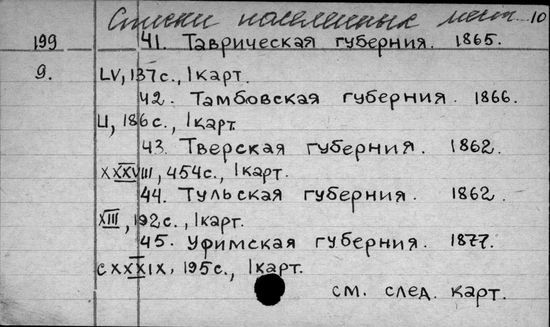 Списки населенных мест 10
199 41. Таврическая губерния. 1865.
9. LV, 137 с., 1 карт.
42. Тамбовская губерния. 1866.
LI, 186 с., 1 карт.
43. Тверская губерния. 1862.
XXXVIII, 454 с., 1 карт.
44. Тульская губерния. 1862.
XIII, 192 с., 1 карт.
45. Уфимская губерния. 1877.
CXXXIX, 195 с., 1 карт.
см. след. карт.